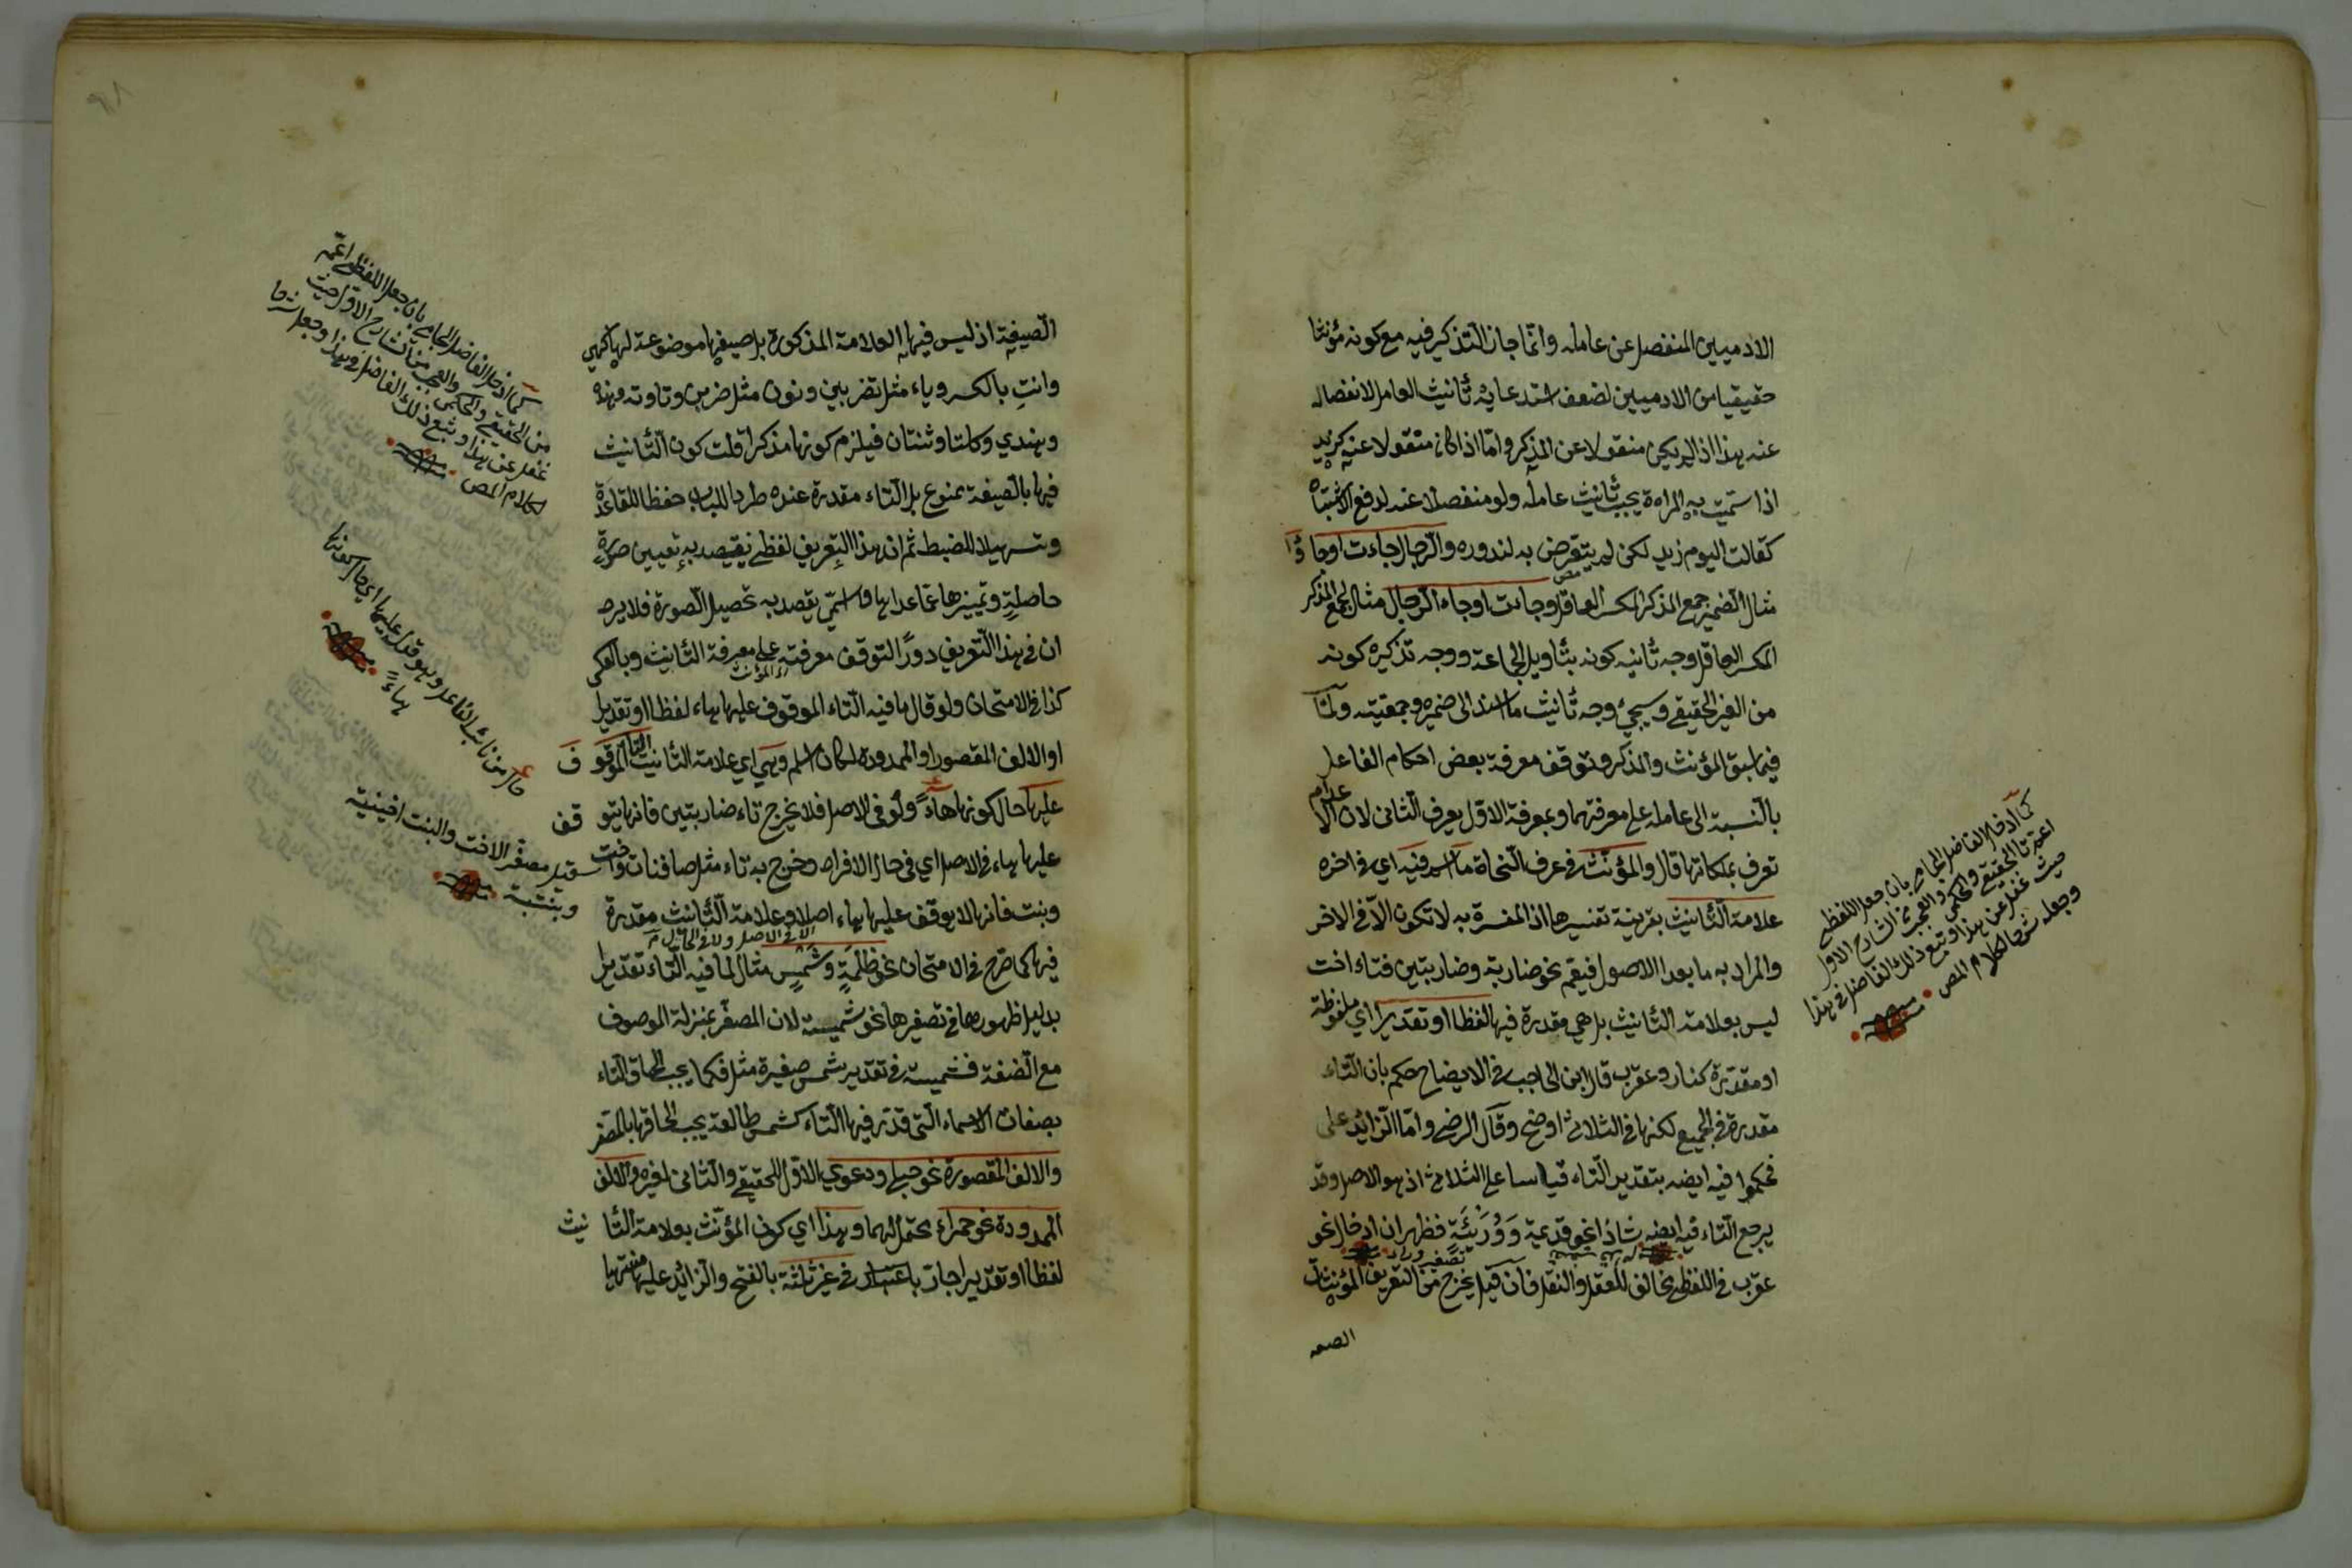 الادميين المنفصل عن عامله وانما جاز التذكير فيه مع كونه مؤنثا
حقيقيا من الادميين لضعف استدعائه تأنيث العامل لانفصاله
عنه هذا اذا لم يكن منقولا عن المذكر واما اذا كان منقولا عنه كزيد
اذا سمّيت به امراة يجب تأنيث عامله ولو منفصلا عنه لدفع الاشتباه
كقالت اليوم زيد لكن لم يتعرض به لندوره والرجال جاءت او جاؤا
مثال الضمير جمع المذكر المكسر العاقل وجاءت او جاء الرجال مثال لجمع المذكر
المكسر العاقل وجه تأنيثه كونه بتأويل الجماعة ووجه تذكيره كونه
من الغير الحقيقي وسيجيء وجه تأنيث ما اسند الى ضميره وجمعيته ولما
فيما سبق المؤنث والمذكر وتوقف معرفة بعض احكام الفاعل
بالنسبة الى عامله على معرفتهما وبمعرفة الاول يعرف الثاني لان الاعدام
تعرف بملكاتها قال والمؤنث في عرف النحاة ما اسم فيه اي في اخره
علامة التأنيث بقرينة تفسيرها اذ المفسرة به لا تكون الا في الاخر
والمراد به ما بعد الاصول فيعم نحو ضاربة وضاربتين فتاء اخت
ليس بعلامة التأنيث بل هي مقدرة فيها لفظا او تقديرا اي ملفوظة
او مقدرة كنار وعقرب قال ابن الحاجب في الايضاح حكم بان التاء
مقدرة في الجميع لكنها في الثلاثي اوضح وقال الرضي واما الزائد على
فحكموا فيه ايضه بتقدير التاء قياسا على الثلاثي اذ هو الاصل وقد
يرجع التاء فيه ايضه شاذا نحو قديمة وورئية فظهر ان ادخال نحو
عقرب في اللفظي مخالف للعقل والنقل فان قيل يخرج من التعريف المؤنثات
الصيغة
كما ادخل الفاضل الجامي بان جعل اللفظي
اعم من الحقيقي والحكمي
والعجب من الشارح الاول
حيث غفل عن هذا وتبع ذلك الفاضل في هذا
وجعله شرحا لكلام المص
الصيغية اذ ليس فيها العلامة المذكورة بل صيغها موضوعة لها كهي
وانتِ بالكسر وياء مثل تضربين ونون مثل ضربن وتا وته وهذه
وهندي وكلتا وثنتان فيلزم كونها مذكرا قلت كون التأنيث
فيها بالصيغة ممنوع بل التاء مقدرة عنده طردا للباب حفظا للقاعدة
وتسهيلا للضبط ثم ان هذا التعريف لفظي يقصد به تعيين صورة
حاصلة وتمييزها عما عداها واسمي يقصد به تحصيل الصورة فلا يرد
ان في هذا التعريف دورا لتوقف معرفته على معرفة التأنيث وبالعكس
كذا في الامتحان ولو قال ما فيه التاء الموقوف عليها هاء لفظا او تقديرا
او الالف المقصورا والممدودة لكان اسلم وهي اي علامة التأنيث التاء الموقوف
عليها حال كونها هاءً ولو في الاصل فلا يخرج تاء ضاربتين فانها يتوقف
عليها هاء في الاصل اي في حال الافراد وخرج به تاء مثل صافنات واخت
وبنت فانها لا يوقف عليها هاء اصلا وعلامة التأنيث مقدرة
فيها كما صرح في الامتحان نحو ظلمة وشمس مثال لما فيه التاء تقديرا
بدليل ظهورها في تصغيرها نحو شميسة لان المصغر بمنزلة الموصوف
مع الصفة فشميسة في تقدير شمس صغيرة مثل فكما يجب الحاق التاء
بصفات الاسماء التي قدّر فيها التاء كشمس طالعة يجب الحاقها بالمصغر
والالف المقصورة نحو حبلى ودعوى الاول للحقيقي والثاني لغيره والالف
الممدودة نحو حمراء يحتملهما وهذا اي كون المؤنث بعلامة التأنيث
لفظا او تقديرا جاز باعتبار في غير ثلثة بالفتح والزائد عليها
كما ادخل الفاضل الجامي بان جعل اللفظي اعم
من الحقيقي والحكمي والعجب من الشارح الاول حيث
غفل عن هذا وتبع ذلك الفاضل في هذا وجعل شرحا
لكلام المص
حال من نائب الفاعل وهو قوله عليها اي حال كونها
هاءً
قيل مصغر الاخت والبنت اخيتة
وبنتية